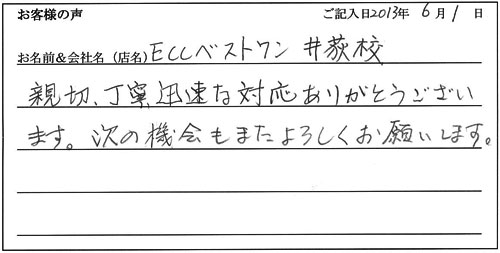 お客様の声 ご記入日2013年 6月 1日
お名前&会社名（店名）ECCベストワン 井荻校
親切、丁寧、迅速な対応ありがとうござい
ます。次の機会もまたよろしくお願いします。